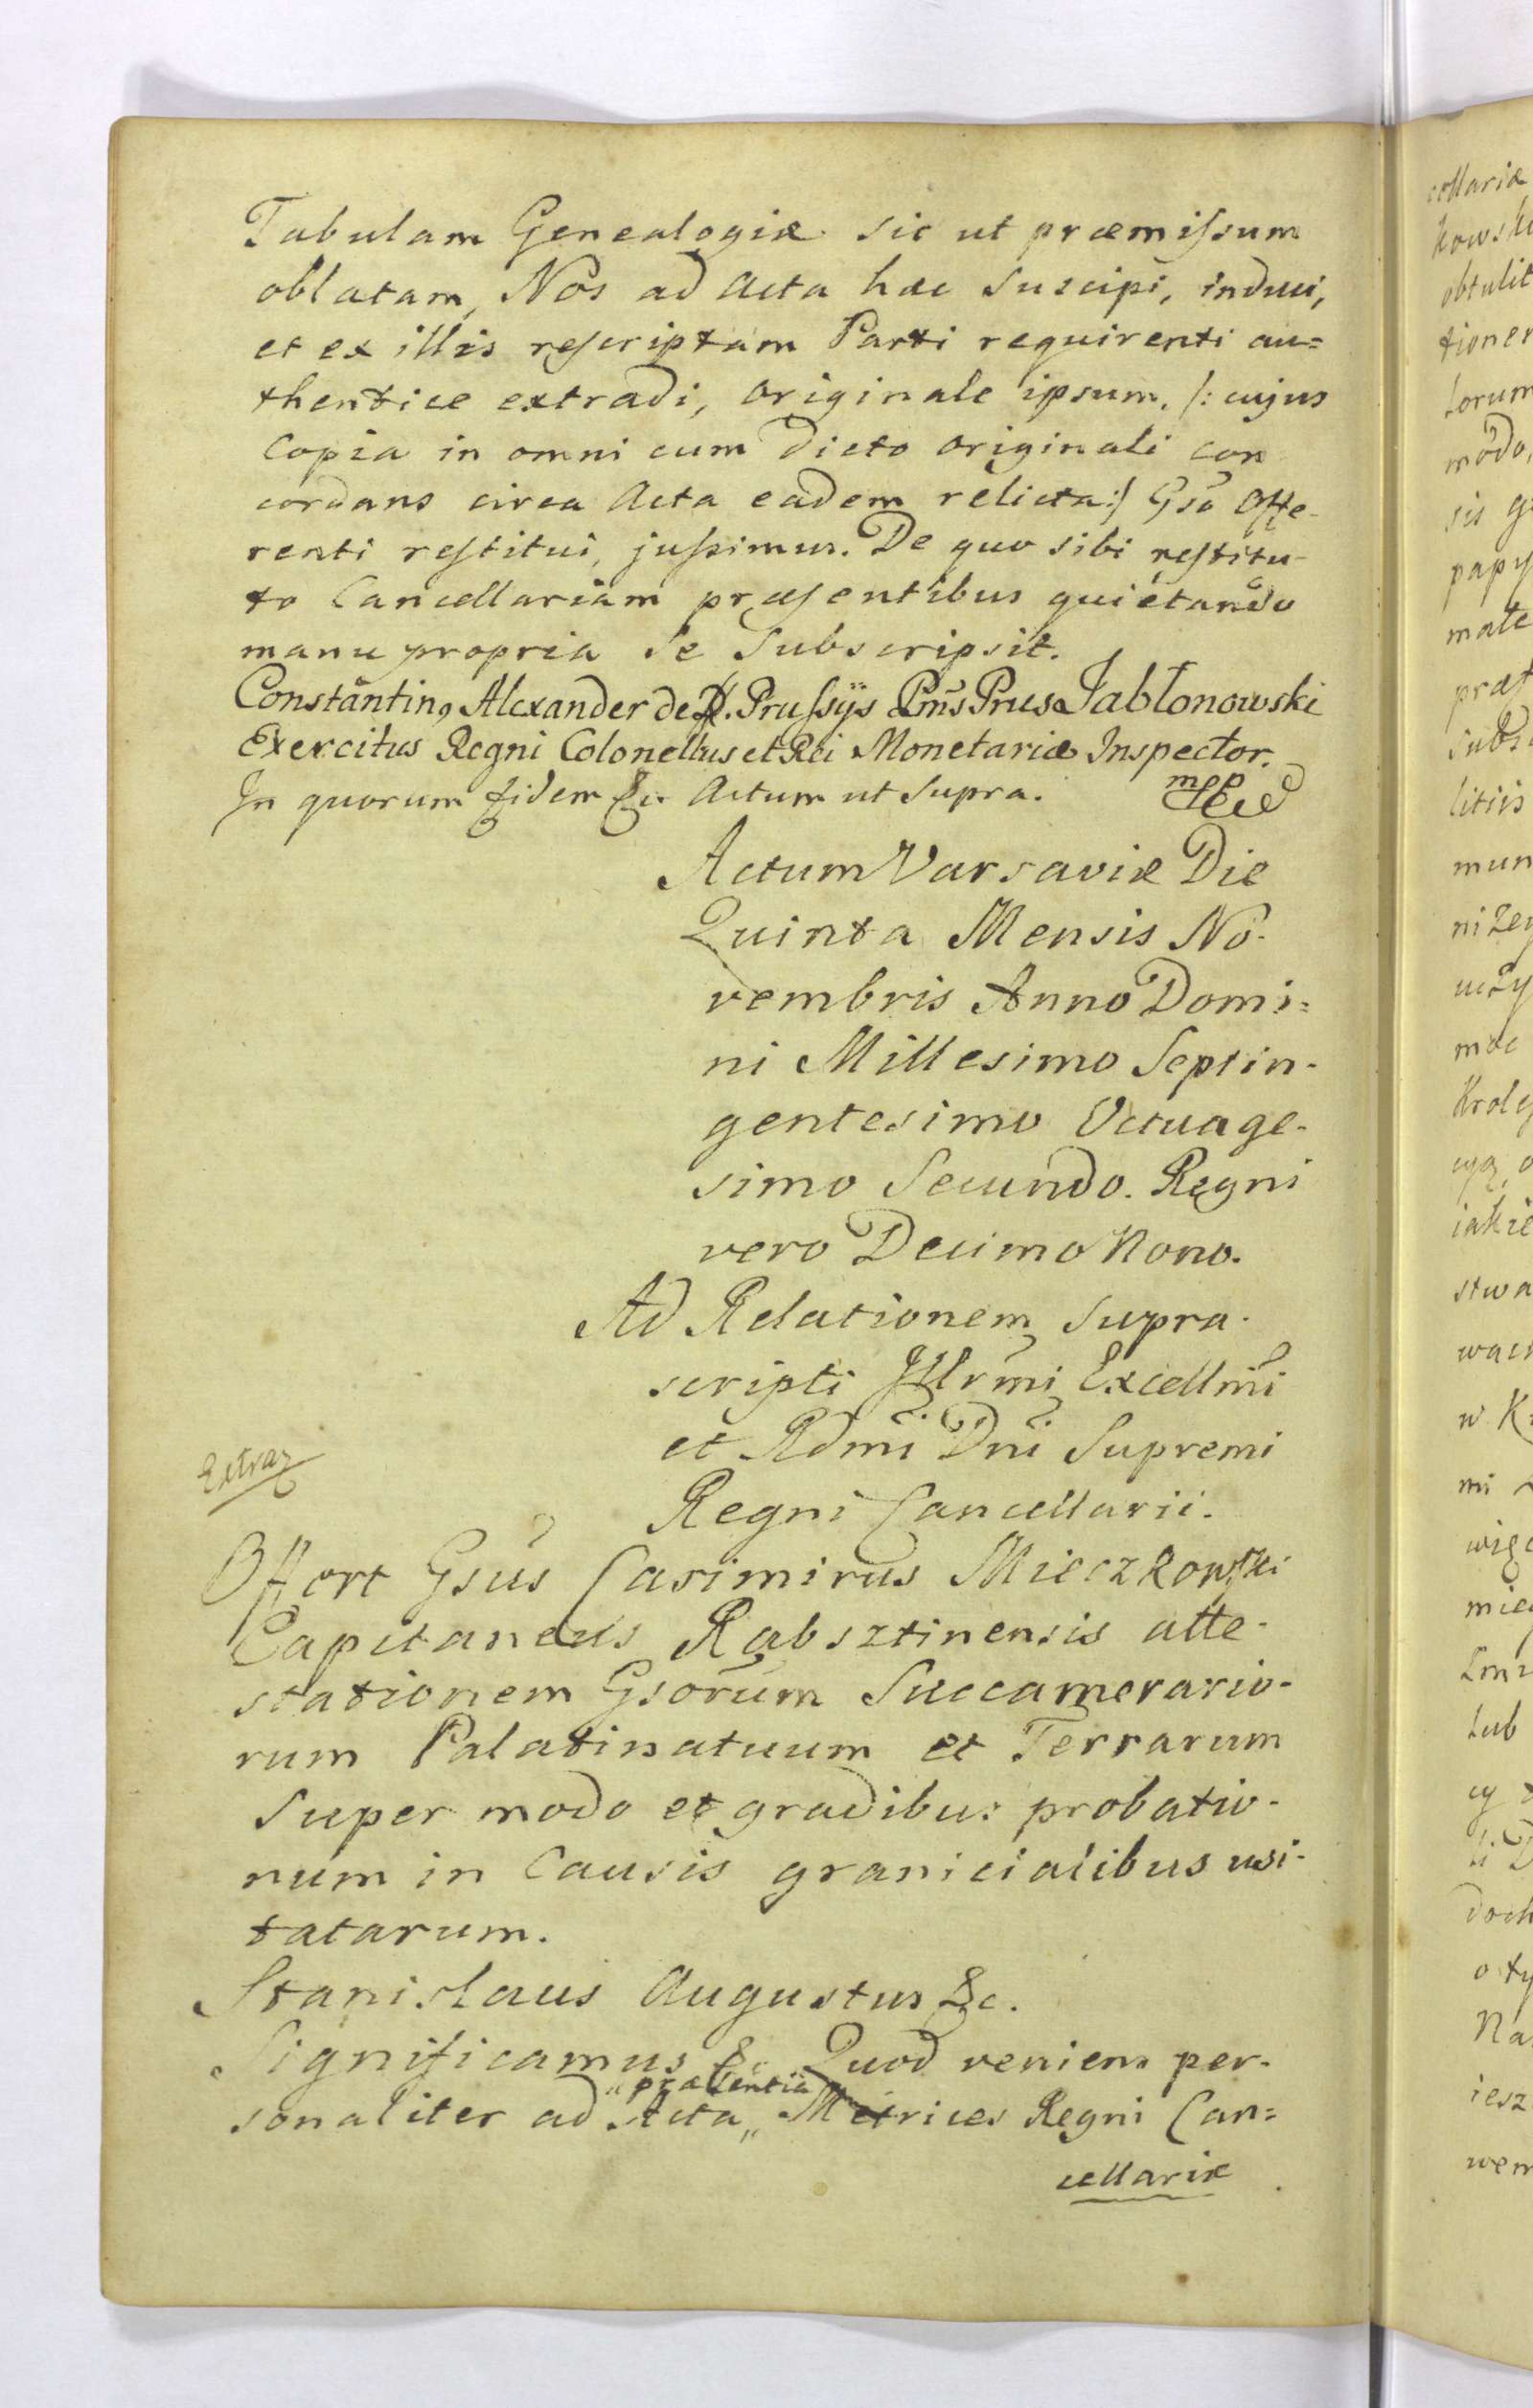 Tabulam Genealogiæ sic ut præmiſsum
oblatam, Nos ad Acta hæc Suscipi, induci,
et ex illis reſcriptam Parti requirenti au=
thentice extradi, Originale ipsum, /: cujus
Copia in omni cum dicto originali con
cordans circa Acta eadem relicta :/ Gso Offe-
renti reſtitui, juſsimus. De quo sibi reſtitu-
to Cancellariam præſentibus quietando
manu propria se Subscripsit.
Constantin9 Alexander de Pruſsÿs Prus Jabłonowski
Exercitus Regni Colonellus et Rei Monetariæ Inspector.
mpp
In quorum fidem &c. Actum ut Supra.
Actum Varsaviæ Die
Quinta Mensis No-
vembris Anno Domi=
ni Millesimo Septin-
gentesimo Octuage-
simo Secundo. Regni
vero Decimo Nono.
Ad Relationem Supra-
scripti Illrmi Excellmi
et Rdmi Dni Supremi
Regni Cancellarii.
Extrad
Offert Gsus Casimirus Mieczkowſki
Capitaneus Rabsztinensis atte-
stationem Gsorum Succamerario-
rum Palatinatuum et Terrarum
Super modo et gradibus probatio-
num in Causis granicialibus usi-
tatarum.
Stanislaus Augustus &c.
Significamus &c. Quod veniens per-
„præsentia
sonaliter ad Acta„ Metrices Regni Can=
cellariæ
collariæ
kowski
obtulit
tionem
Lorum
modo,
sis
papy
mate
præſ
Subs
litiis
mun
niżey
uczy
mæ
Krole
cyą
iakie
stwa
wac
w K
mi
więc
mie
Lub
cy
li D
doch
o ty
Na
iesz
wem